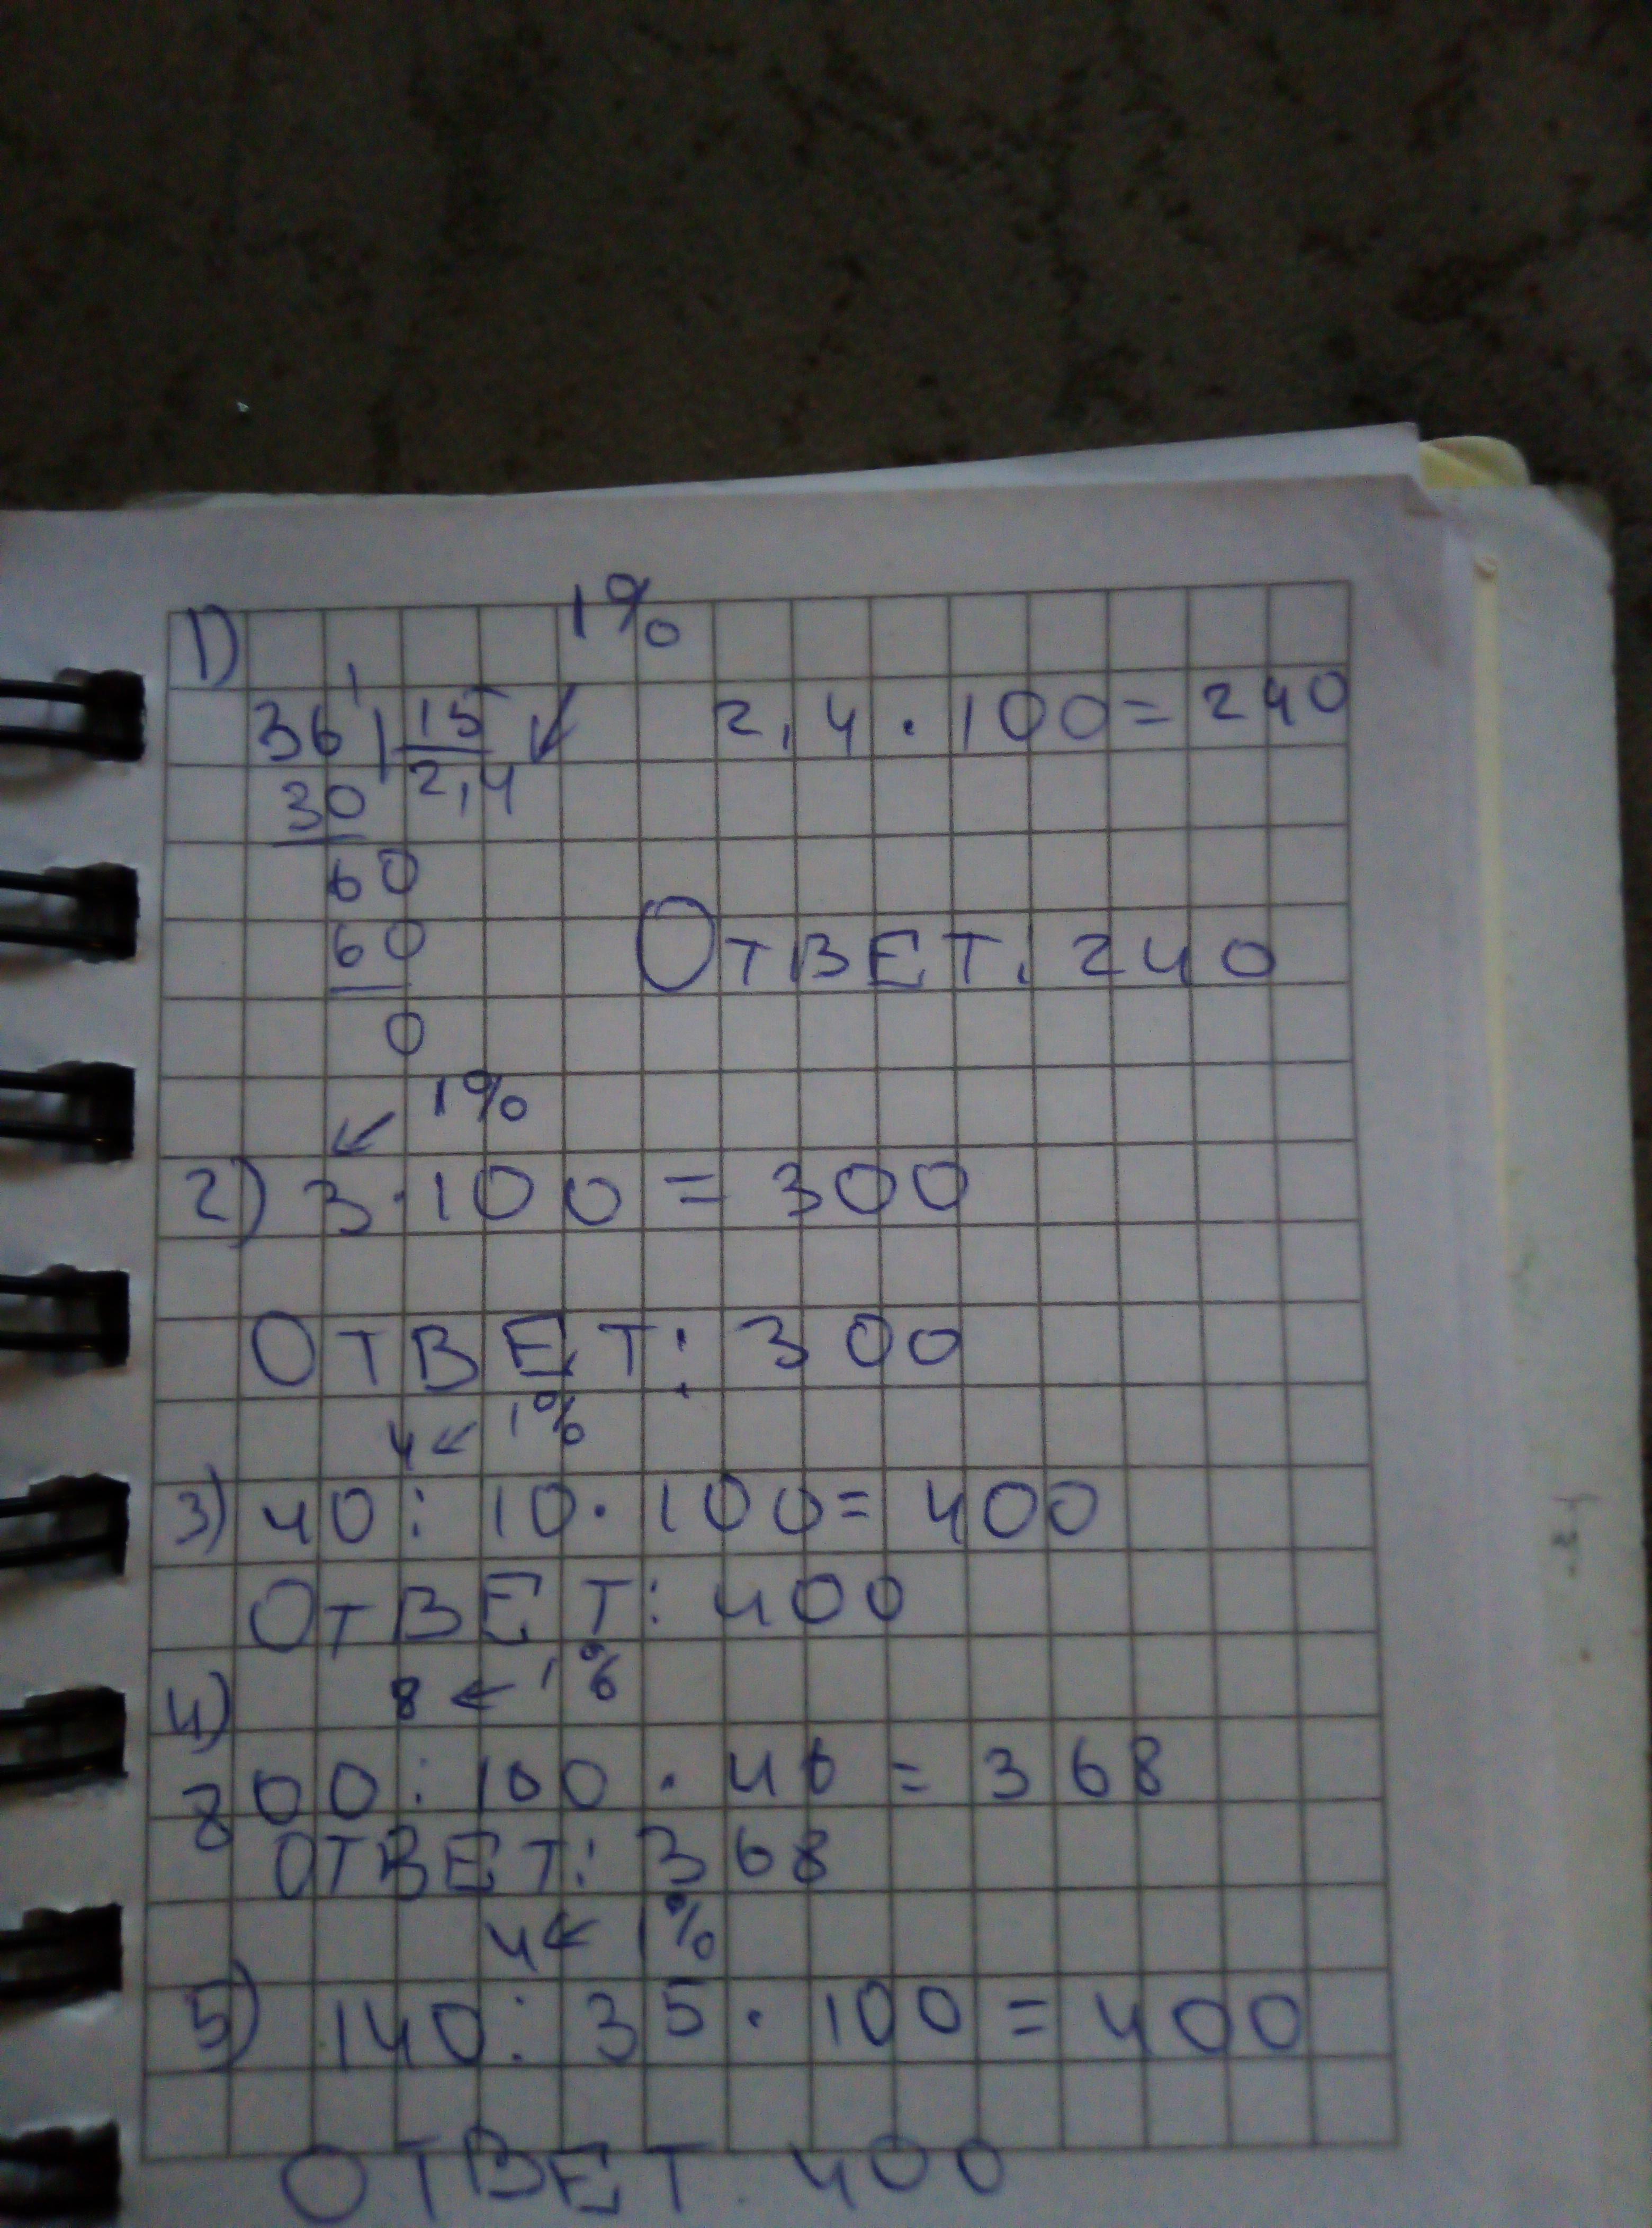 1) 1%
36 | 15 2,4 · 100 = 240
30 2,4
60
60 Ответ: 240
0
1%
2) 3 · 100 = 300
ОТВЕТ: 300
4 ← 1%
3) 40 : 10 · 100 = 400
ОТВЕТ: 400
4) 8 ← 1%
800 : 100 · 46 = 368
ОТВЕТ: 368
4 ← 1%
5) 140 : 35 · 100 = 400
ОТВЕТ. 400